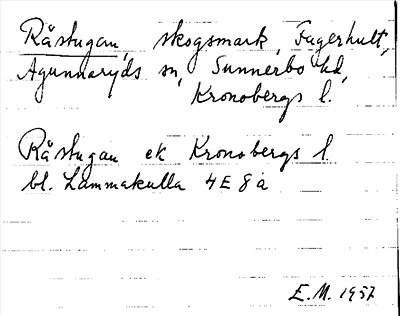 Råstugan, skogsmark, Fagerhult,
Agunnaryds sn, Sunnerbo hd,
Kronobergs l.
Råstugan ek Kronobergs l
bl. Lammakulla 4E8a
E.M. 1957